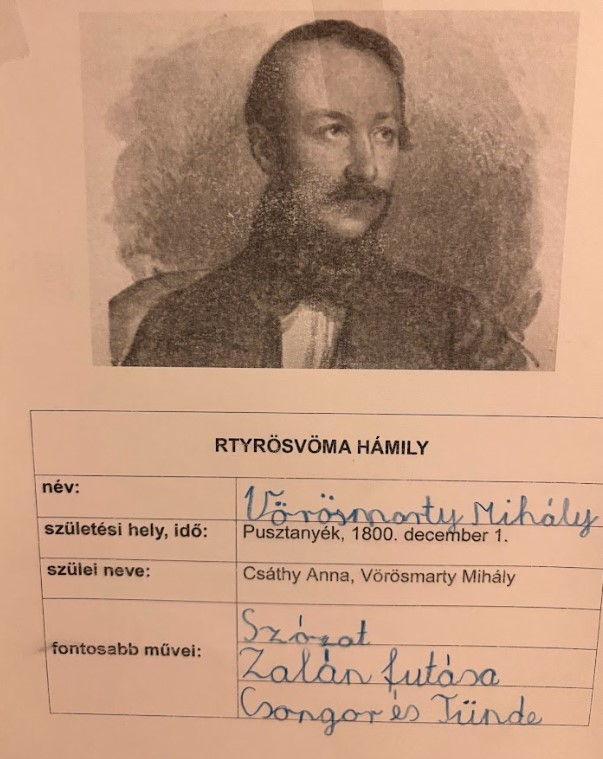 RTYRÖSVÖMA HÁMILY
név:
Vörösmarty Mihály
születési hely, idő:
Pusztanyék, 1800. december 1.
szülei neve:
Csáthy Anna, Vörösmarty Mihály
fontosabb művei:
Szózat
Zalán futása
Csongor és Tünde